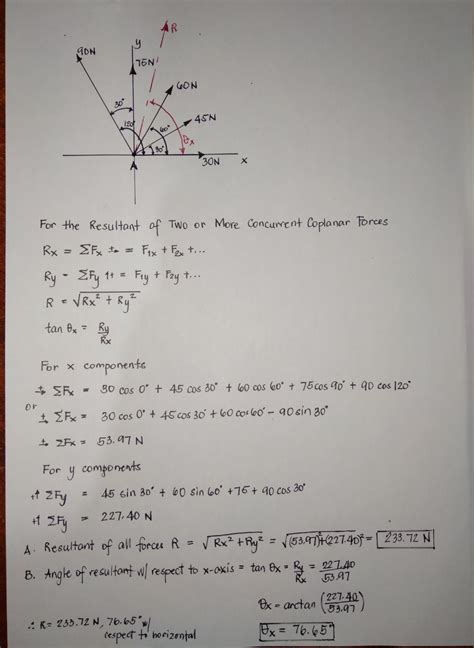 R
y
90N
75N
60N
30°
45N
120°
60°
θx
30°
30N
x
A
For the Resultant of Two or More Concurrent Coplanar Forces
Rx = ΣFx +→ = F1x + F2x +...
Ry = ΣFy +↑ = F1y + F2y +...
R = √Rx² + Ry²
tan θx = Ry/Rx
For x components
+→ ΣFx = 30 cos 0° + 45 cos 30° + 60 cos 60° + 75 cos 90° + 90 cos 120°
or
+→ ΣFx = 30 cos 0° + 45 cos 30° + 60 cos 60° - 90 sin 30°
+→ ΣFx = 53.97 N
For y components
+↑ ΣFy = 45 sin 30° + 60 sin 60° + 75 + 90 cos 30°
+↑ ΣFy = 227.40 N
A. Resultant of all forces R = √Rx² + Ry² = √(53.97)²+(227.40)² = 233.72 N
B. Angle of resultant w/ respect to x-axis = tan θx = Ry/Rx = 227.40/53.97
θx = arctan (227.40/53.97)
∴ R = 233.72 N, 76.65° w/
respect to horizontal
θx = 76.65°